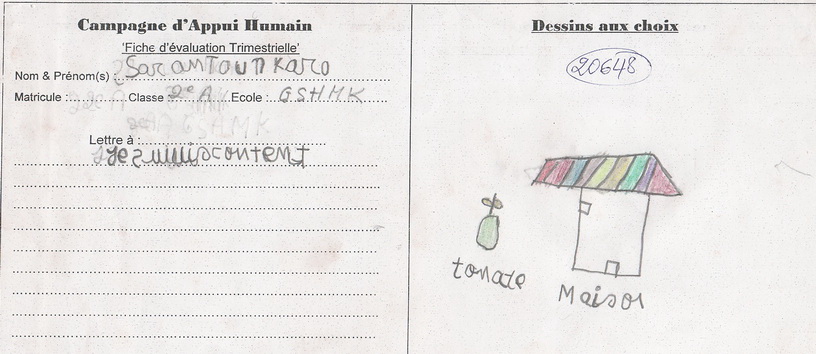 Campagne d'Appui Humain
'Fiche d'évaluation Trimestrielle'
Nom & Prénom(s) : Saran Tounkara
Matricule : Classe 2e A Ecole : GSHHK
Lettre à :
content
Dessins aux choix
20648
tomate
Maison